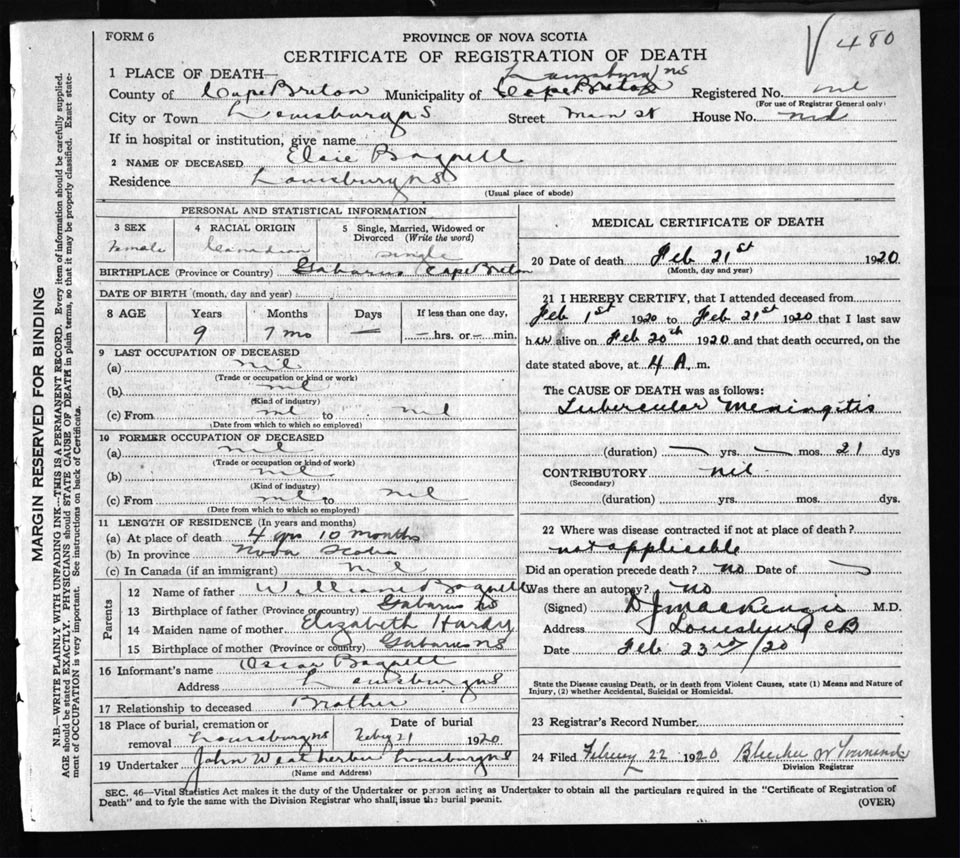 FORM 6
PROVINCE OF NOVA SCOTIA
480
CERTIFICATE OF REGISTRATION OF DEATH
1 PLACE OF DEATH—
Louisburg NS
County of Cape Breton Municipality of Cape Breton Registered No. nil
(For use of Registrar General only)
City or Town Louisburg NS Street Main St House No.
If in hospital or institution, give name
2 NAME OF DECEASED Elsie Bagnell
Residence Louisburg NS
(Usual place of abode)
PERSONAL AND STATISTICAL INFORMATION
3 SEX 4 RACIAL ORIGIN 5 Single, Married, Widowed or
Divorced (Write the word)
Female Canadian Single
BIRTHPLACE (Province or Country) Gabarus Cape Breton
DATE OF BIRTH (month, day and year)
8 AGE Years Months Days If less than one day,
9 7 mo — — hrs. or — min.
9 LAST OCCUPATION OF DECEASED
(a) nil
(Trade or occupation or kind or work)
(b) nil
(Kind of industry)
(c) From nil to nil
(Date from which to which so employed)
10 FORMER OCCUPATION OF DECEASED
(a) nil
(Trade or occupation or kind of work)
(b) nil
(Kind of industry)
(c) From nil to nil
(Date from which to which so employed)
11 LENGTH OF RESIDENCE (In years and months)
(a) At place of death 4 yrs 10 months
(b) In province Nova Scotia
(c) In Canada (if an immigrant) nil
Parents
12 Name of father William Bagnell
13 Birthplace of father (Province or country) Gabarus NS
14 Maiden name of mother Elizabeth Hardy
15 Birthplace of mother (Province or country) Gabarus NS
16 Informant's name Oscar Bagnell
Address Louisburg NS
17 Relationship to deceased Brother
18 Place of burial, cremation or Date of burial
removal Louisburg NS Feby 21 1920
19 Undertaker John Weatherbee Louisburg NS
(Name and Address)
MEDICAL CERTIFICATE OF DEATH
20 Date of death Feb 21st 1920.
(Month, day and year)
21 I HEREBY CERTIFY, that I attended deceased from
Feb 1st 1920 to Feb 21st 1920 that I last saw
her alive on Feb 20th 1920 and that death occurred, on the
date stated above, at 4 A. m.
The CAUSE OF DEATH was as follows:
Tubercular Meningitis
(duration) — yrs. — mos. 21 dys
CONTRIBUTORY nil
(Secondary)
(duration) yrs. mos. dys.
22 Where was disease contracted if not at place of death?
not applicable
Did an operation precede death? no Date of —
Was there an autopsy? no
(Signed) D J MacKenzie M.D.
Address Louisburg CB
Date Feb 23rd/20
State the Disease causing Death, or in death from Violent Causes, state (1) Means and Nature of
Injury, (2) whether Accidental, Suicidal or Homicidal.
23 Registrar's Record Number
24 Filed February 22 1920 W Townsend
Division Registrar
SEC. 46—Vital Statistics Act makes it the duty of the Undertaker or person acting as Undertaker to obtain all the particulars required in the "Certificate of Registration of
Death" and to fyle the same with the Division Registrar who shall issue the burial permit.
(OVER)
MARGIN RESERVED FOR BINDING
N.B.—WRITE PLAINLY WITH UNFADING INK—THIS IS A PERMANENT RECORD. Every item of information should be carefully supplied.
AGE should be stated EXACTLY. PHYSICIANS should STATE CAUSE OF DEATH in plain terms, so that it may be properly classified. Exact state-
ment of OCCUPATION is very important. See instructions on back of Certificate.